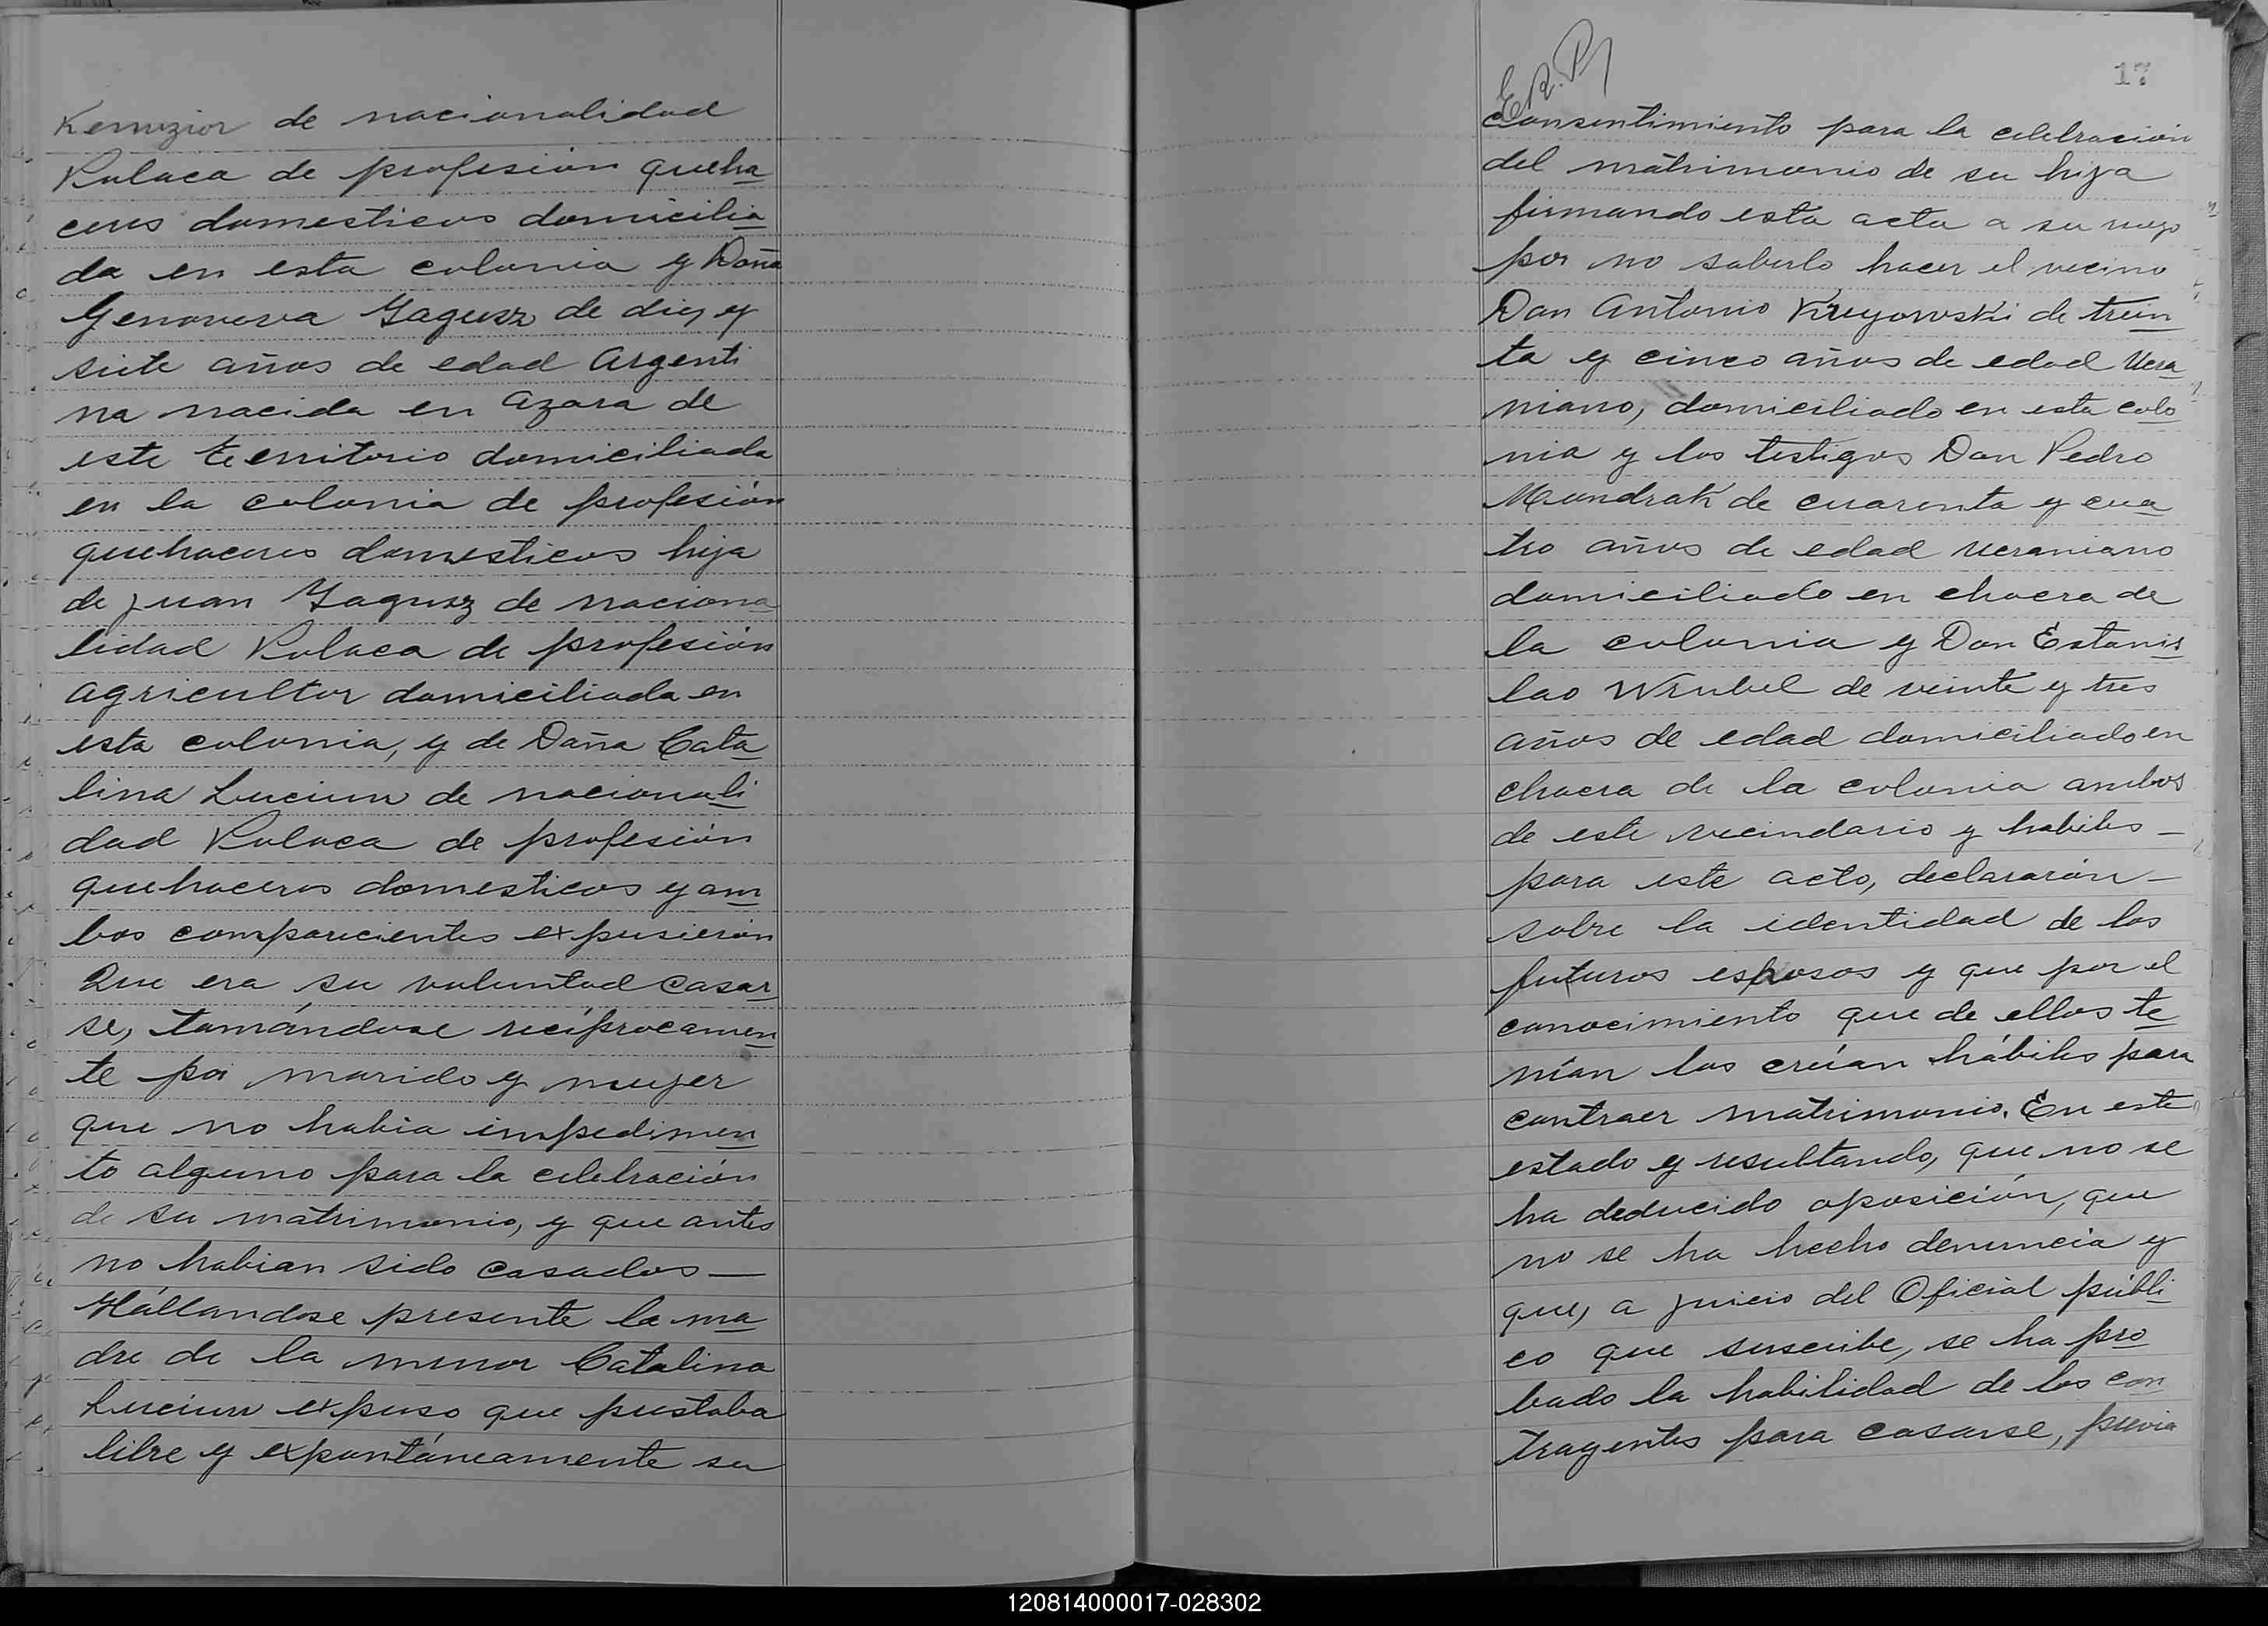 Kemizior de nacionalidad
Polaca de profesión queha
ceres domesticos domicilia
da en esta colonia y Doña
Genoveva Yagusz de diez y
siete años de edad Argenti
na nacida en Azara de
este territorio domiciliada
en la colonia de profesión
quehaceres domesticos hija
de Juan Yagusz de naciona
lidad Polaca de profesión
agricultor domiciliada en
esta colonia, y de Doña Cata
lina Luciuw de nacionali
dad Polaca de profesión
quehaceres domesticos y am
bos comparecientes expusierón
Que era su voluntad casar
se, tomándose recíprocamen
te por marido y mujer
que no habia impedimen
to alguno para la celebración
de su matrimonio, y que antes
no habian sido casados—
Hállandose presente la ma
dre de la menor Catalina
Luciuw expuso que prestaba
libre y expontáneamente su
E.R.P.
17
consentimiento para la celebración
del matrimonio de su hija
firmando esta acta a su ruego
por no saberlo hacer el vecino
Don Antonio Kreyowski de trein
ta y cinco años de edad Ucra
niano, domiciliado en esta colo
nia y los testigos Don Pedro
Mundrak de cuarenta y cua
tro años de edad Ucraniano
domiciliado en chacra de
la colonia y Don Estanis
lao Wrubel de veinte y tres
años de edad domiciliado en
chacra de la colonia ambos
de este vecindario y habiles—
para este acto, declararón—
sobre la identidad de los
futuros esposos y que por el
conocimiento que de ellos te
nían los creían hábiles para
contraer matrimonio. En este
estado y resultando, que no se
ha deducido oposición, que
no se ha hecho denuncia y
que, a juicio del Oficial públi
co que suscribe, se ha pro
bado la habilidad de los con
trayentes para casarse, previa
120814000017-028302